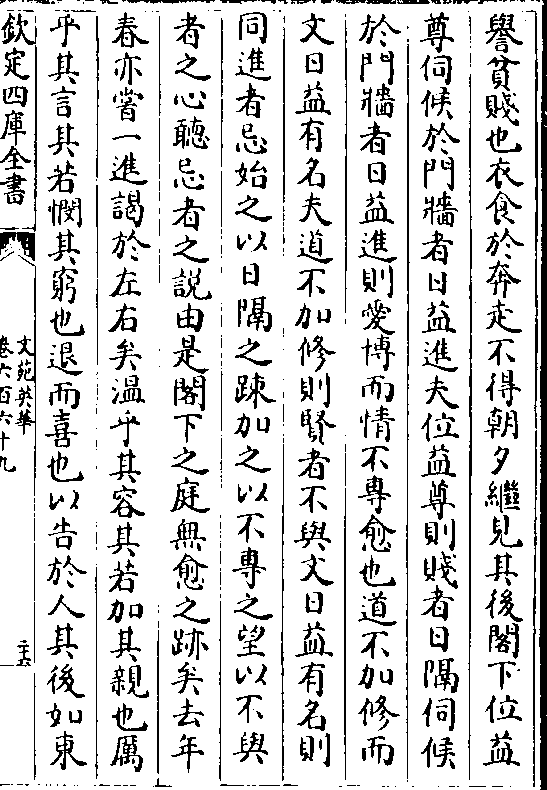 譽貧賤也衣食於奔走不得朝夕繼見其後閣下位益
尊伺候於門牆者日益進夫位益尊則賤者日隔伺候
於門牆者日益進則愛博而情不專愈也道不加修而
文日益有名夫道不加修則賢者不與文日益有名則
同進者忌始之以日隔之踈加之以不專之望以不與
者之心聽忌者之説由是閣下之庭無愈之跡矣去年
春亦嘗一進謁於左右矣温乎其容其若加其親也厲
乎其言其若憫其窮也退而喜也以告於人其後如東
欽定四庫全書
文苑英華
卷六百六十九
二十六